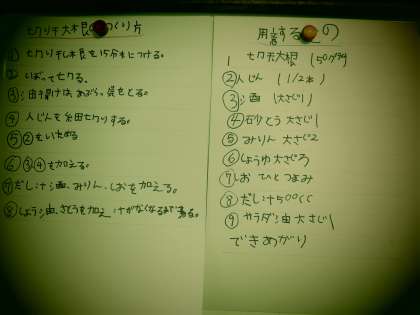 セクリ干大根のつくり方
① セクリ干し大根を15分水につける。
② しぼってセクる。
③ 油揚げは、あぶらっ気をとる。
④ 人じんを細切クリする。
⑤ ②をいためる
⑥ ③④を加える。
⑦ だし汁酒、みりん、しおを加える。
⑧ しょう油、さとうを加え 汁がなくなるまでにる。
用意するもの
1 セクリ干大根 (50グラム)
② 人じん (1/2本)
③ 酒 (大さじ1)
④ 砂とう 大さじ1
⑤ みりん 大さじ2
⑥ しょうゆ 大さじ
⑦ しお ひとつまみ
⑧ だし汁500CC
⑨ サラダ油 大さじ1
できあがり